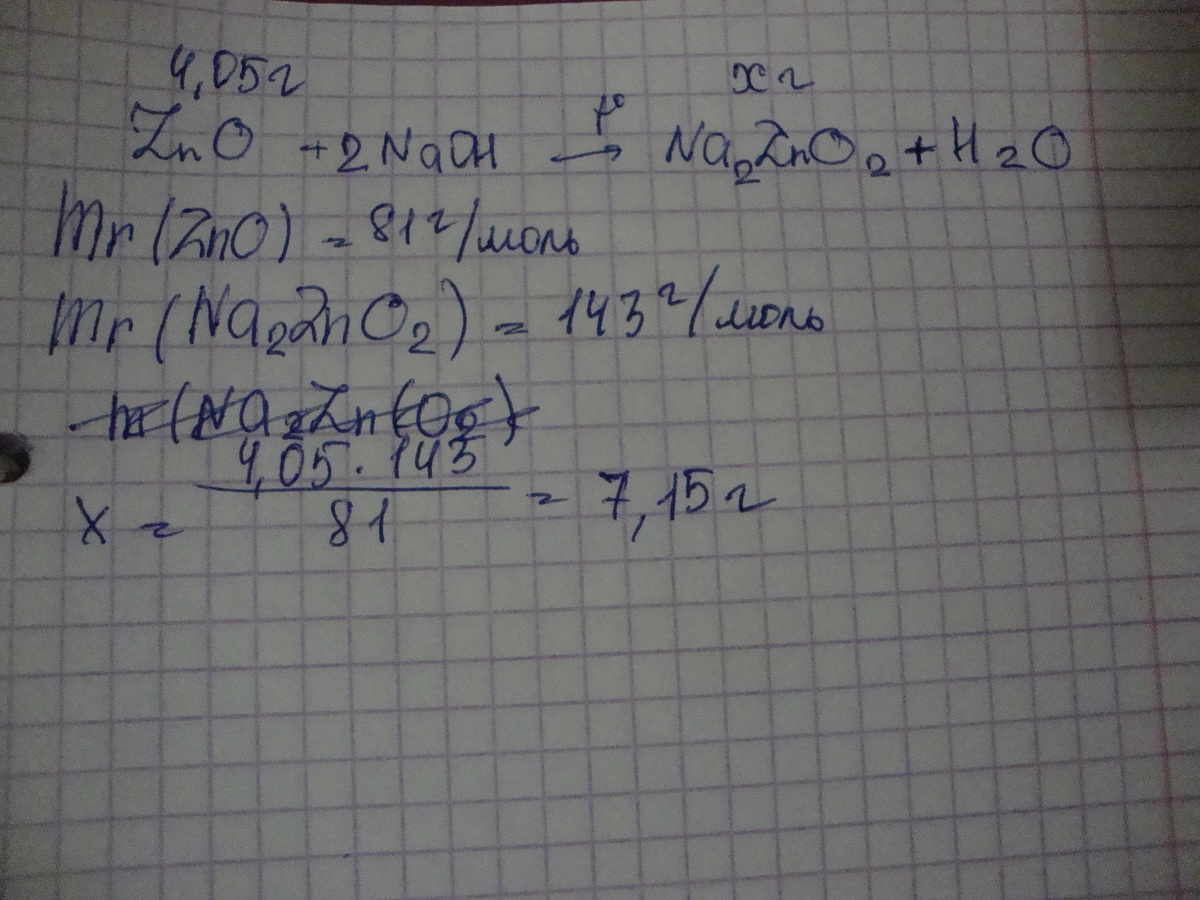 4,05г xг
ZnO + 2NaOH t° → Na₂ZnO₂ + H₂O
Mr(ZnO) = 81 г/моль
Mr(Na₂ZnO₂) = 143 г/моль
4,05 · 143
X = 81 = 7,15 г